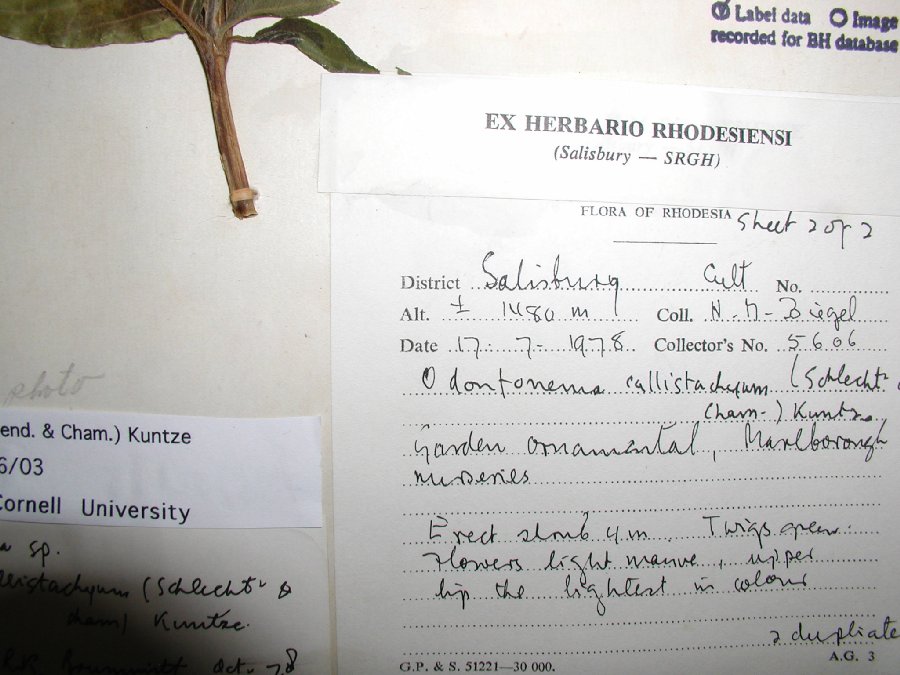 Label data Image
recorded for BH database
EX HERBARIO RHODESIENSI
(Salisbury — SRGH)
FLORA OF RHODESIA Sheet 2 of 2
District Salisbury Cult No.
Alt. ± 1480 m Coll. H. M. Biegel
Date 17. 7. 1978 Collector's No. 5606
Odontonema callistachyum (Schlecht. &
Cham.) Kuntze
Garden ornamental, Marlborough
nurseries
Erect shrub 4 m. Twigs green.
Flowers light mauve, upper
lip the lightest in colour
2 duplicate
G.P. & S. 51221—30 000. A.G. 3
photo
end. & Cham.) Kuntze
6/03
Cornell University
a sp.
llistachyum (Schlecht. &
Cham) Kuntze.
Oct. 78